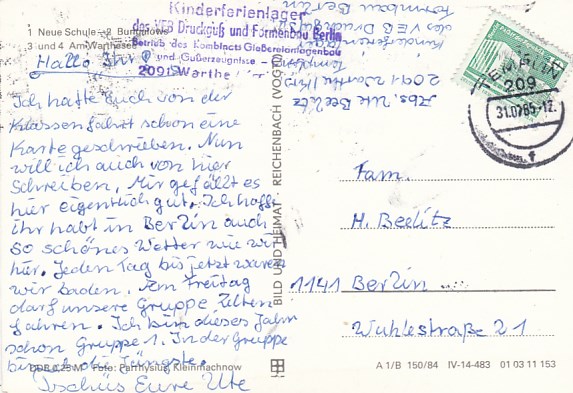 1 Neue Schule – 2 Bungalows
3 und 4 Am Warthesee
Kinderferienlager
des VEB Druckguß und Formenbau Berlin
Betrieb des Kombinats Gießereianlagenbau
und Gußerzeugnisse
2091 Warthe
Hallo Ihr!
Ich hatte Euch von der
Klassenfahrt schon eine
Karte geschrieben. Nun
will ich auch von hier
schreiben. Mir gefällt es
hier eigentlich gut. Ich hoffe
ihr habt in Berlin auch
so schönes Wetter wie wir
hier. Jeden Tag bis jetzt waren
wir baden. Am Freitag
darf unsere Gruppe Zelten
fahren. Ich bin dieses Jahr
schon Gruppe 1. In der Gruppe
bin ich die Jüngste.
Tschüs Eure Ute
Foto: Parrhysius, Kleinmachnow
BILD UND HEIMAT REICHENBACH (VOGTL)
Abs. Ute Beelitz
2091 Warthe
Kinderferienlager
des VEB Druckguß u.
Formenbau Berlin
TEMPLIN
209
31.07.85-12
Fam.
H. Beelitz
1141 Berlin
Wuhlestraße 21
A 1/B 150/84 IV-14-483 01 03 11 153